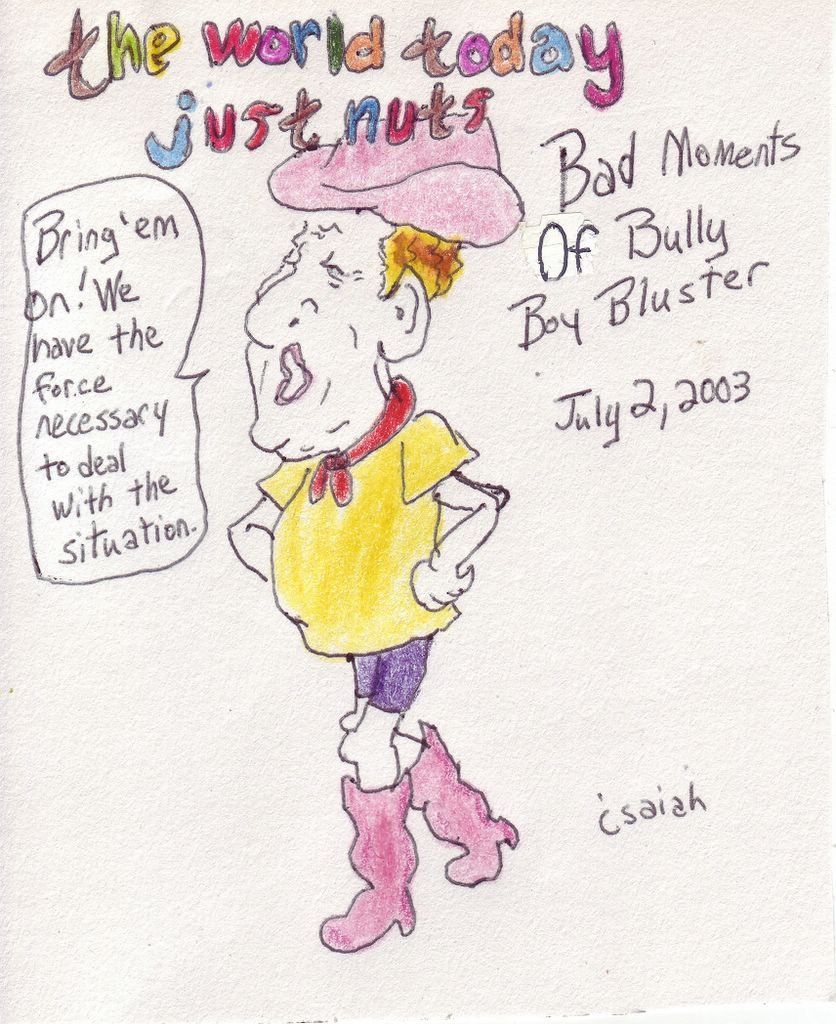 the world today
just nuts
Bad Moments
Of Bully
Boy Bluster
July 2, 2003
Bring 'em
on! We
have the
force
necessary
to deal
with the
situation.
isaiah